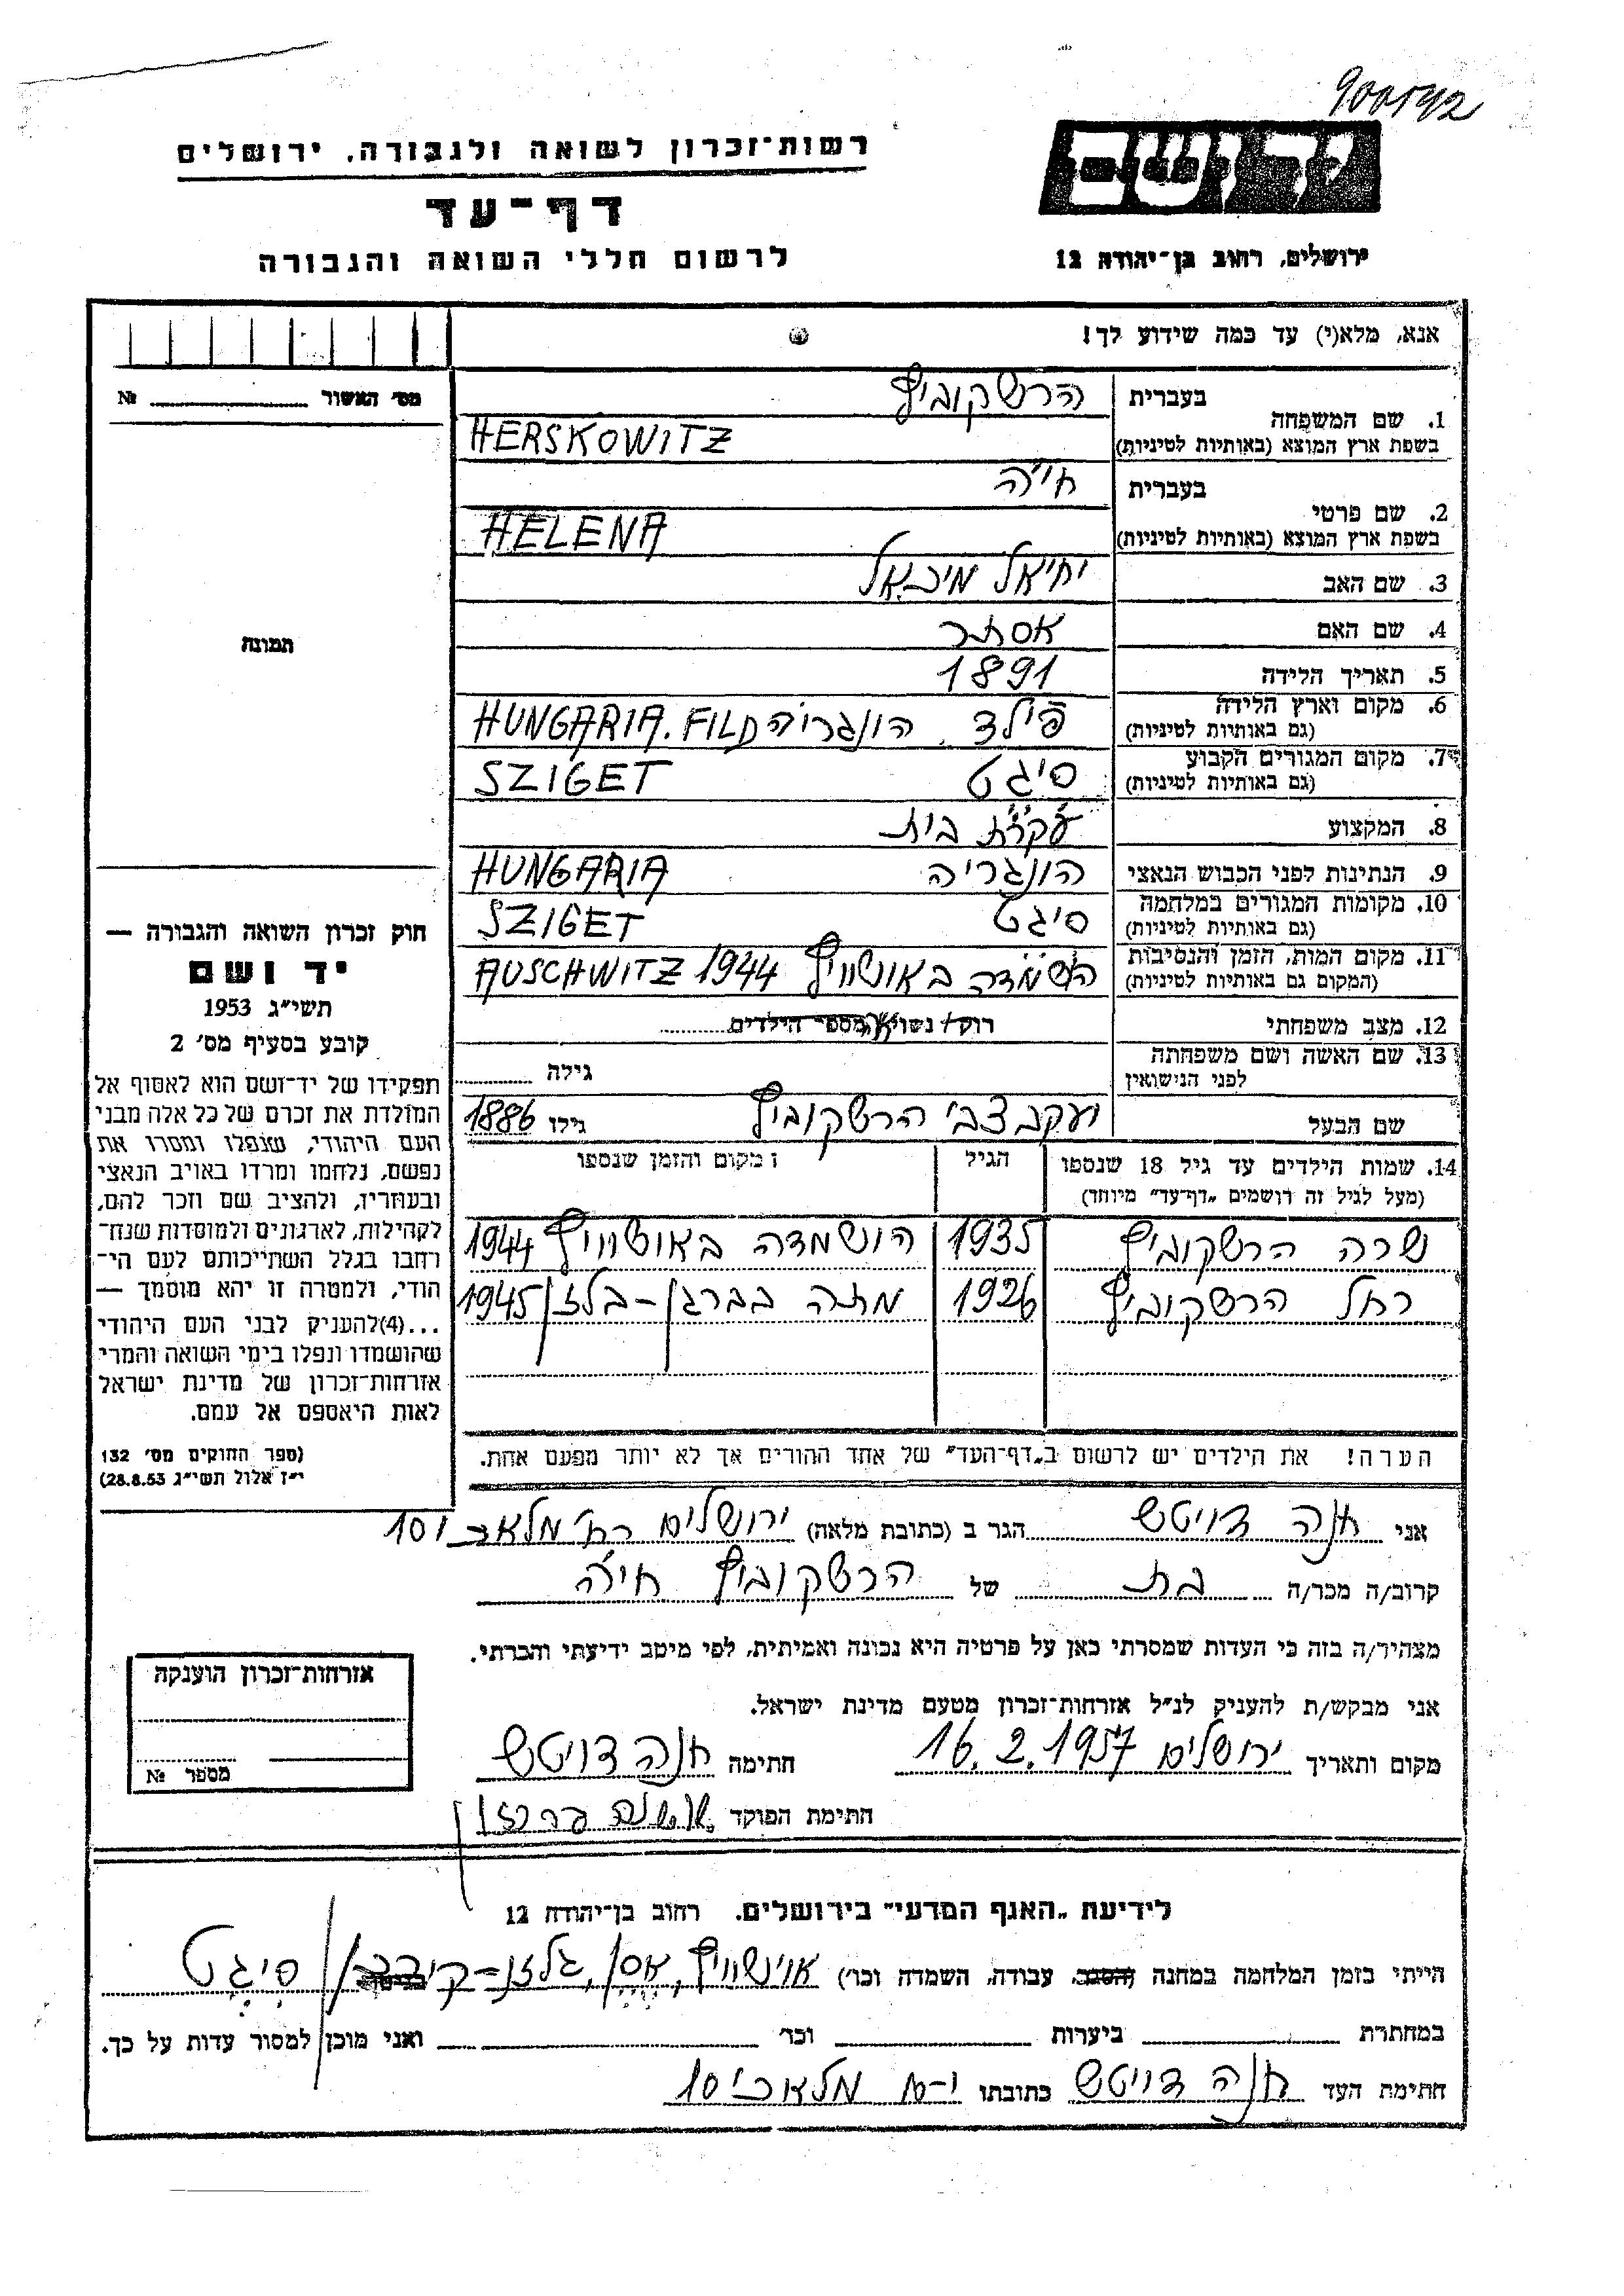 900592
יד ושם
ירושלים, רחוב בן־יהודה 12
רשות־זכרון לשואה ולגבורה, ירושלים
דף־עד
לרשום חללי השואה והגבורה
אנא, מלא(י) עד כמה שידוע לך!
מס׳ האשור № 
1. שם המשפחה בעברית הרשקוביץ
בשפת ארץ המוצא (באותיות לטיניות) HERSKOWITZ
2. שם פרטי בעברית חיה
בשפת ארץ המוצא (באותיות לטיניות) HELENA
3. שם האב יחיאל מיכאל
4. שם האם אסתר
5. תאריך הלידה 1891
6. מקום וארץ הלידה (גם באותיות לטיניות) פילד. הונגריה HUNGARIA. FILD
7. מקום המגורים הקבוע (גם באותיות לטיניות) סיגט SZIGET
8. המקצוע עקרת בית
9. הנתינות לפני הכבוש הנאצי הונגריה HUNGARIA
10. מקומות המגורים במלחמה (גם באותיות לטיניות) סיגט SZIGET
11. מקום המות, הזמן והנסיבות (המקום גם באותיות לטיניות) השמדה באושוויץ AUSCHWITZ 1944
12. מצב משפחתי רוק/ נשוי/אה מספר הילדים
13. שם האשה ושם משפחתה לפני הנישואין גילה
שם הבעל יעקב צבי הרשקוביץ גילו 1886
14. שמות הילדים עד גיל 18 שנספו הגיל מקום והזמן שנספו
(מעל לגיל זה רושמים „דף־עד״ מיוחד)
שרה הרשקוביץ 1935 הושמדה באושוויץ 1944
רחל הרשקוביץ 1926 מתה בברגן-בלזן 1945
הערה! את הילדים יש לרשום ב„דף־העד״ של אחד ההורים אך לא יותר מפעם אחת.
תמונה
חוק זכרון השואה והגבורה —
יד ושם
תשי״ג 1953
קובע בסעיף מס׳ 2
תפקידו של יד־ושם הוא לאסוף אל
המולדת את זכרם של כל אלה מבני
העם היהודי, שנפלו ומסרו את
נפשם, נלחמו ומרדו באויב הנאצי
ובעוזריו, ולהציב שם וזכר להם,
לקהילות, לארגונים ולמוסדות שנח־
רחבו בגלל השתייכותם לעם הי־
הודי, ולמטרה זו יהא מוסמך —
...(4)להעניק לבני העם היהודי
שהושמדו ונפלו בימי השואה והמרי
אזרחות־זכרון של מדינת ישראל
לאות היאספם אל עמם.
(ספר החוקים מס׳ 132
י״ז אלול תשי״ג 28.8.53)
אני חנה דויטש הגר ב (כתובת מלאה) ירושלים רח׳ מלאכי 10
קרוב/ה מכר/ה בת של הרשקוביץ חיה
מצהיר/ה בזה כי העדות שמסרתי כאן על פרטיה היא נכונה ואמיתית, לפי מיטב ידיעתי והכרתי.
אני מבקש/ת להעניק לנ״ל אזרחות־זכרון מטעם מדינת ישראל.
מקום ותאריך ירושלים 16.2.1957 חתימה חנה דויטש
חתימת הפוקד
אזרחות־זכרון הוענקה
מספר №
לידיעת „האגף המדעי״ בירושלים. רחוב בן־יהודה 12
הייתי בזמן המלחמה במחנה (הסגר, עבודה, השמדה וכו׳) אוישוויץ, אסן, גלזן-קירכן בגיטו סיגט
במחתרת ביערות וכו׳ ואני מוכן למסור עדות על כך.
חתימת העד חנה דויטש כתובתו י-ם מלאכי 10